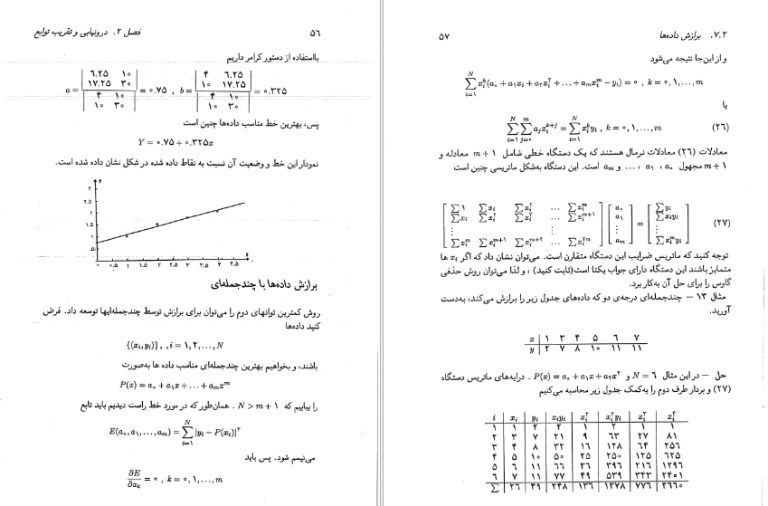 ۵۶
فصل ۲. درونیابی و تقریب توابع
بااستفاده از دستور کرامر داریم
a = | ۶.۲۵ ۱۰ | | ۱۷.۲۵ ۳۰ | / | ۴ ۱۰ | | ۱۰ ۳۰ | = ۰.۷۵ , b = | ۴ ۶.۲۵ | | ۱۰ ۱۷.۲۵ | / | ۴ ۱۰ | | ۱۰ ۳۰ | = ۰.۳۲۵
پس، بهترین خط مناسب داده‌ها چنین است
Y = ۰.۷۵ + ۰.۳۲۵x
نمودار این خط و وضعیت آن نسبت به نقاط داده شده در شکل نشان داده شده است.
۲.۵
۲
۱.۵
۱
۰.۵
۰ ۰.۵ ۱ ۱.۵ ۲ ۲.۵ ۳ ۳.۵ ۴ ۴.۵
برازش داده‌ها با چندجمله‌ای
روش کمترین توانهای دوم را می‌توان برای برازش توسط چندجمله‌ایها توسعه داد. فرض
کنید داده‌ها
{(xᵢ, yᵢ)}, , i = ۱, ۲, ..., N
باشند، و بخواهیم بهترین چندجمله‌ای مناسب داده ها به‌صورت
P(x) = a₀ + a₁x + ... + aₘxᵐ
را بیابیم که N > m + ۱ . همان‌طور که در مورد خط راست دیدیم باید تابع
E(a₀, a₁, ..., aₘ) = ∑ᵢ₌₁ᴺ |yᵢ − P(xᵢ)|²
می‌نیمم شود. پس باید
∂E/∂aₖ = ۰ , k = ۰, ۱, ..., m
۵۷
۷.۲. برازش داده‌ها
و از این‌جا نتیجه می‌شود
∑ᵢ₌₁ᴺ xᵢᵏ(a₀ + a₁xᵢ + a₂xᵢ² + ... + aₘxᵢᵐ − yᵢ) = ۰ , k = ۰, ۱, ..., m
یا
∑ᵢ₌₁ᴺ ∑ⱼ₌₀ᵐ aⱼxᵢᵏ⁺ʲ = ∑ᵢ₌₁ᴺ xᵢᵏyᵢ , k = ۰, ۱, ..., m (۲۶)
معادلات (۲۶) معادلات نرمال هستند که یک دستگاه خطی شامل m + ۱ معادله و
m + ۱ مجهول a₀ ، a₁ ، ... و aₘ است. این دستگاه به‌شکل ماتریسی چنین است
[ ∑۱ ∑xᵢ ∑xᵢ² ... ∑xᵢᵐ ] [ a₀ ] [ ∑yᵢ ]
[ ∑xᵢ ∑xᵢ² ∑xᵢ³ ... ∑xᵢᵐ⁺¹ ] [ a₁ ] = [ ∑xᵢyᵢ ] (۲۷)
[ ⋮ ⋮ ] [ ⋮ ] [ ⋮ ]
[ ∑xᵢᵐ ∑xᵢᵐ⁺¹ ∑xᵢᵐ⁺² ... ∑xᵢ²ᵐ ] [ aₘ ] [ ∑xᵢᵐyᵢ ]
توجه کنید که ماتریس ضرایب این دستگاه متقارن است. می‌توان نشان داد که اگر xᵢ ها
متمایز باشند این دستگاه دارای جواب یکتا است(ثابت کنید) ، و لذا می‌توان روش حذفی
گاوس را برای حل آن به‌کار برد.
مثال ۱۳ – چندجمله‌ای درجه‌ی دو که داده‌های جدول زیر را برازش می‌کند، به‌دست
آورید.
x ۱ ۳ ۴ ۵ ۶ ۷
y ۲ ۷ ۸ ۱۰ ۱۱ ۱۱
حل – در این مثال N = ۶ و P(x) = a₀ + a₁x + a₂x² . درایه‌های ماتریس دستگاه
(۲۷) و بردار طرف دوم را به‌کمک جدول زیر محاسبه می‌کنیم
i xᵢ yᵢ xᵢyᵢ xᵢ² xᵢ²yᵢ xᵢ³ xᵢ⁴
۱ ۱ ۲ ۲ ۱ ۲ ۱ ۱
۲ ۳ ۷ ۲۱ ۹ ۶۳ ۲۷ ۸۱
۳ ۴ ۸ ۳۲ ۱۶ ۱۲۸ ۶۴ ۲۵۶
۴ ۵ ۱۰ ۵۰ ۲۵ ۲۵۰ ۱۲۵ ۶۲۵
۵ ۶ ۱۱ ۶۶ ۳۶ ۳۹۶ ۲۱۶ ۱۲۹۶
۶ ۷ ۱۱ ۷۷ ۴۹ ۵۳۹ ۳۴۳ ۲۴۰۱
∑ ۲۶ ۴۹ ۲۴۸ ۱۳۶ ۱۳۷۸ ۷۷۶ ۴۶۶۰